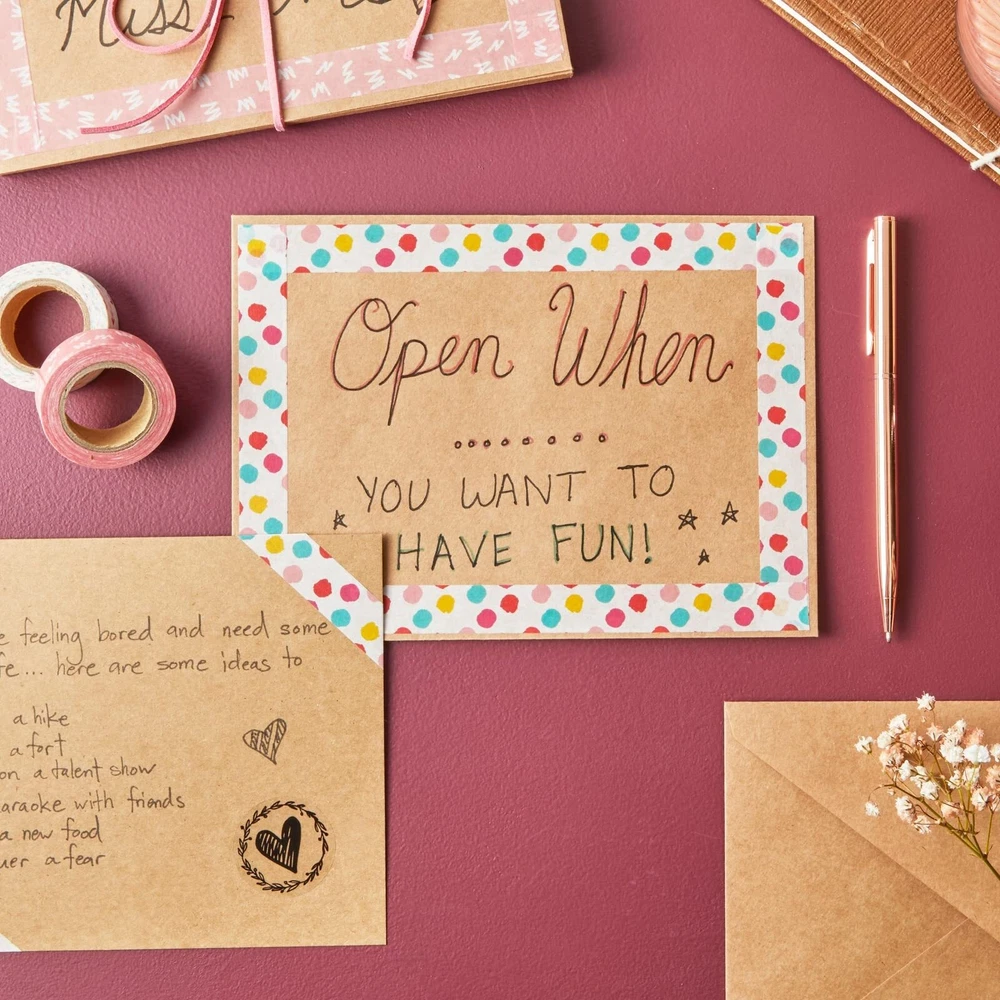 Miss
Open When
YOU WANT TO
HAVE FUN!
feeling bored and need some
... here are some ideas to
a hike
a fort
on a talent show
karaoke with friends
a new food
a fear